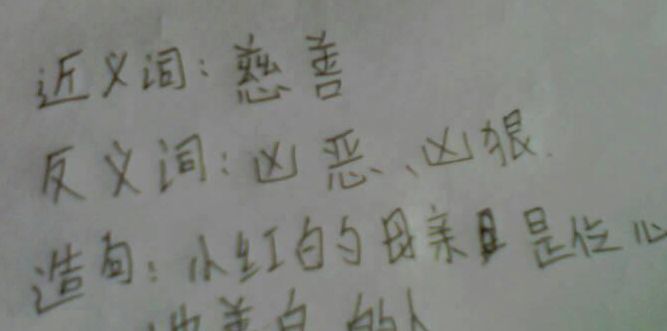 近义词：慈善
反义词：凶恶、凶狠.
造句：小红的母亲是位心
地善良的人